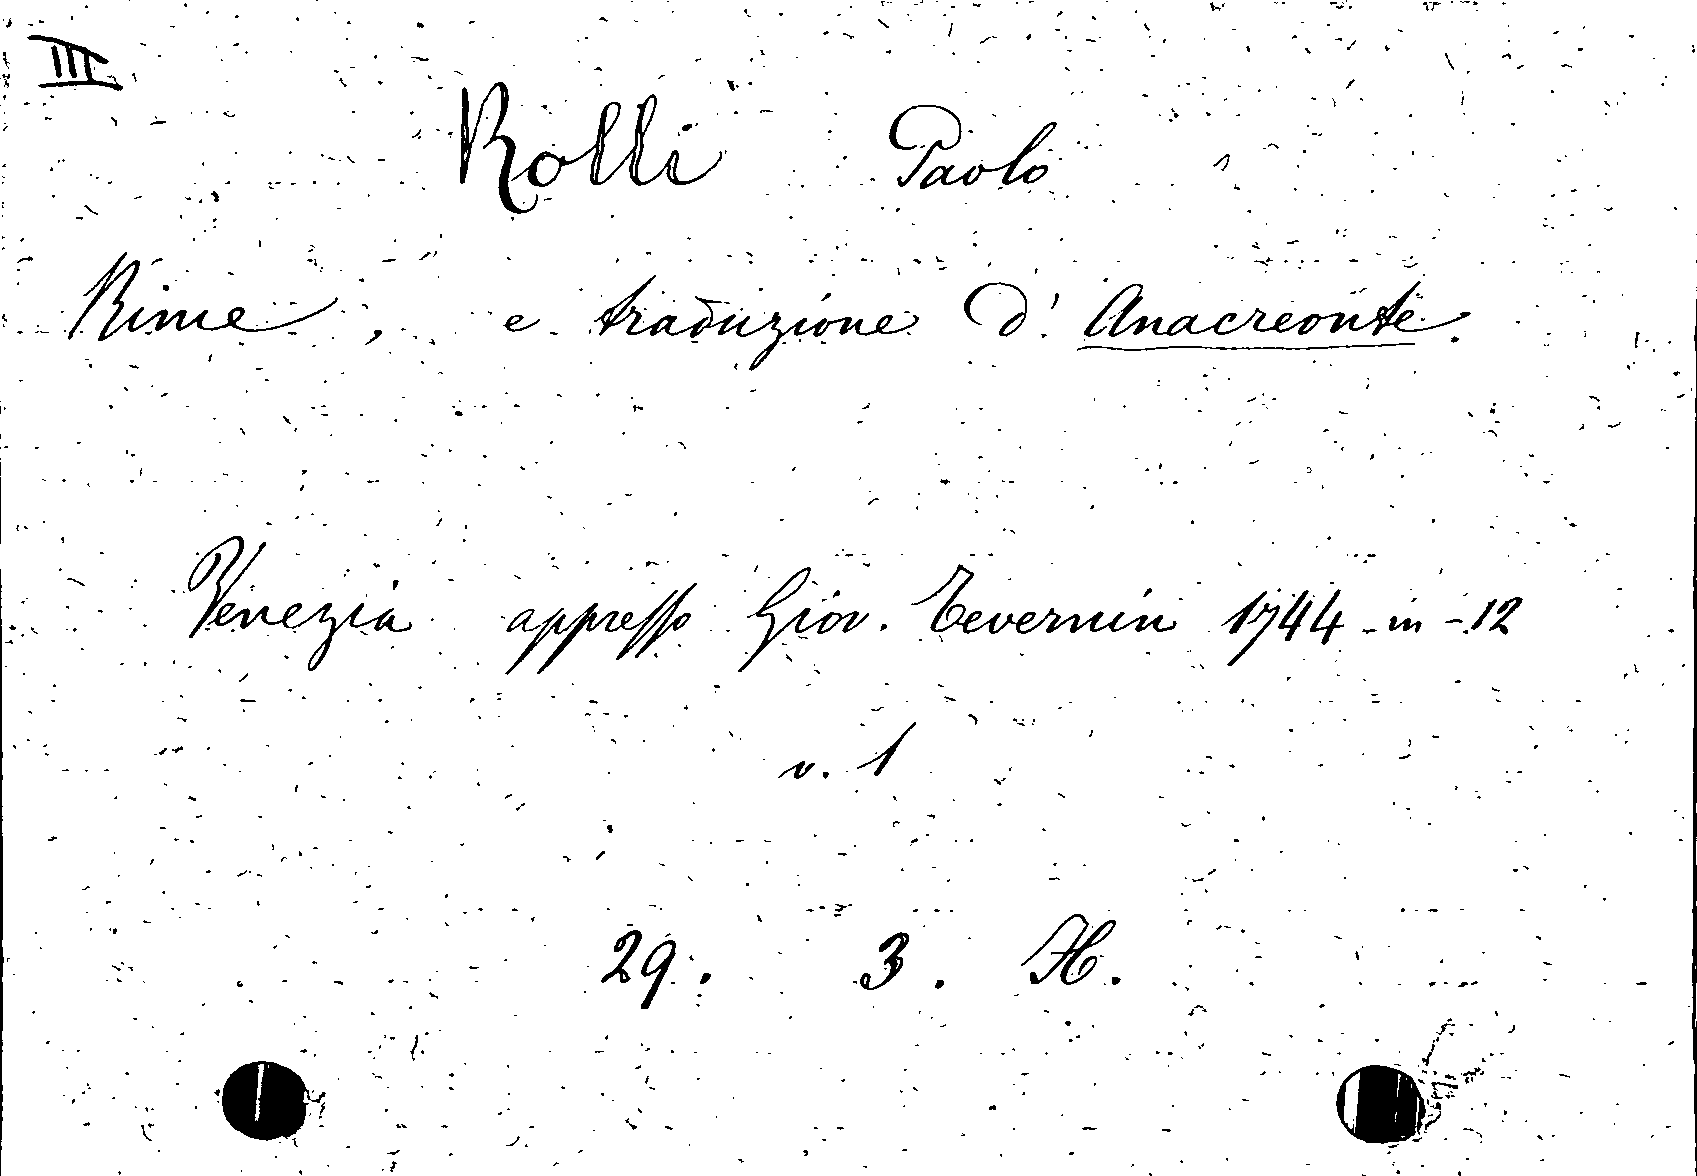 III
Rolli Paolo
Rime, e traduzione d'Anacreonte.
Venezia appresso Giov. Tevernin 1744 in-12
v. 1
29. 3. H.